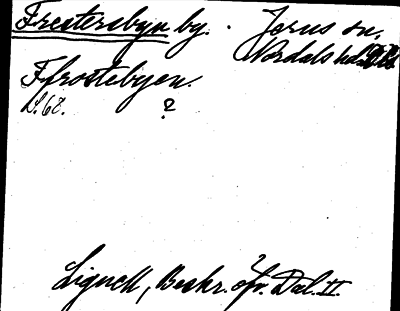 Frestersbyn by. Järns sn,
Nordals hd.
Ffrostebyen.
L. 68. ?
Lignell, Beskr. öfv. Dal. II.